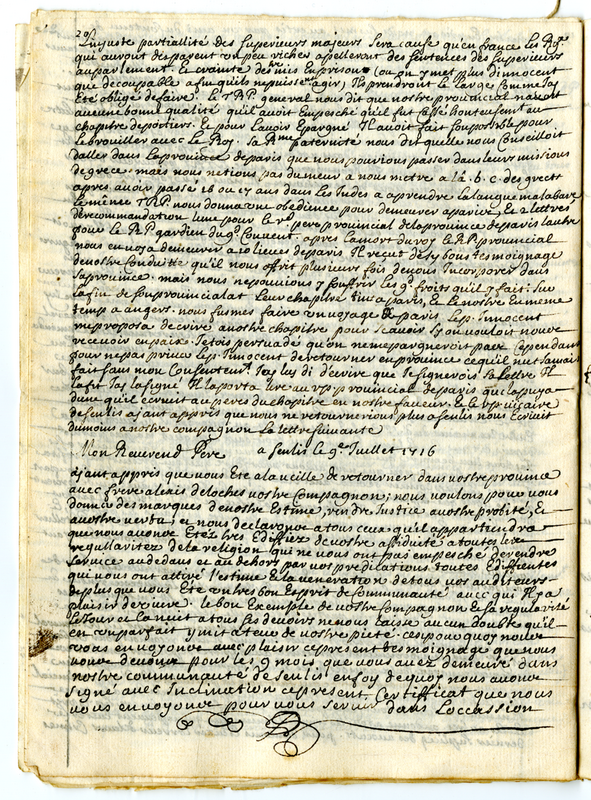 20
Linjuste partiallité des superieurs majeurs sera cause qu'en france les Rgx.
qui auront des parent un peu riches apelleront des sentences des superieurs
au parlement. et crainte destre mis En prison (ou on y met plus d'innocent
que de coupable afin qu'ils ne puissent agir) Ils prendront le large comme jay
Eté obligé de faire. le T.R.P. general nous dit que nostre provincial navoit
aucune bonne qualité qu'il avoit Empesché qu'il fut Cassé honteusement au
chapitre de poitiers. Et pour l'avoir Epargné Il avoit fait son possible pour
le brouiller avec le Roy. sa Rme paternité nous dit quelle nous Conseilloit
daller dans la province de paris que nous pourions passer dans leurs missions
de grece. mais nous n'etions pas d'umeur a nous metre a l'a. b. c. des grects
apres avoir passé 16 ou 17 ans dans les Indes a aprendre la langue malabare
le même T.R.P. nous donna une obedience pour demeurer a paris, Et 2 lettres
de recommandation lune pour le rd. pere provincial de la province de paris lautre
pour le R.P. gardien du gd Couvent. apres la mort du roy le R.P. provincial
nous envoya demeurer a 10 lieues de paris Il reçut de sy bons tesmoignage
de nostre Conduitte qu'il nous offrit plusieurs fois de nous Incorporer dans
sa province. mais nous ne pouvions y souffrir les gd froits qu'il y fait: sur
la fin de son provincialat leur chapitre tint a paris, Et le nostre en meme
temp a angers. nous fusmes faire un voyage de paris le p. Innocent
me proposa décrire a nostre chapitre pour scavoir sy on vouloit nous
recevoir en paix. Jetois persuadé qu'on ne m'epargneroit pas. Cependant
pour ne pas priver le p. Innocent de retourner en province ce qu'il n'ut jamais
fait sans mon Consentemt. Jay luy di décrire que je signerois sa lettre Il
la fit Jay la signé Il la porta lire au r.p. provincial de paris qui l'apuya
dune qu'il écrivit aux peres du chapitre en nostre faveur. Et le r.p. vicaire
de senlis ajant appris que nous ne retournerions plus a senlis nous Ecrivit
du moins a nostre compagnon la lettre suivante
Mon Reverend Pere a senlis le 9e. Juillet 1716
ajant appris que vous Ete a la veille de retourner dans vostre province
avec frere alexis de loches vostre Compagnon; nous voulons pour vous
donner des marques de nostre Estime, rendre Justice a vostre probité, Et
a vostre vertu; et nous declarons a tous ceux qu'il appartiendra
que nous avons Eté tres Edifiez de vostre assiduité a toutes les
regullaritez de la religion qui ne vous ont pas empesché de rendre
service au dedans et au dehors par vos predications toutes Edifiantes
qui vous ont attiré l'estime Et la veneration de tous vos auditeurs
de plus que vous Ete un tres bon Esprit de Communauté avec qui Il y a
plaisir de vivre. le bon Exemple de vostre Compagnon Et sa regularité
le jour et la nuit a tous ses devoirs ne nous laisse aucun doubte qu'il
est un parfait ymitateur de vostre pieté. cest pourquoy nous
vous envoyons avec plaisir ce present tesmoignage que nous
vous devons pour les 9 mois que vous avez demeuré dans
nostre communauté de senlis en foy de quoy nous avons
signé avec Inclination ce present Certifficat que nous
vous envoyons pour vous servir dans Loccassion